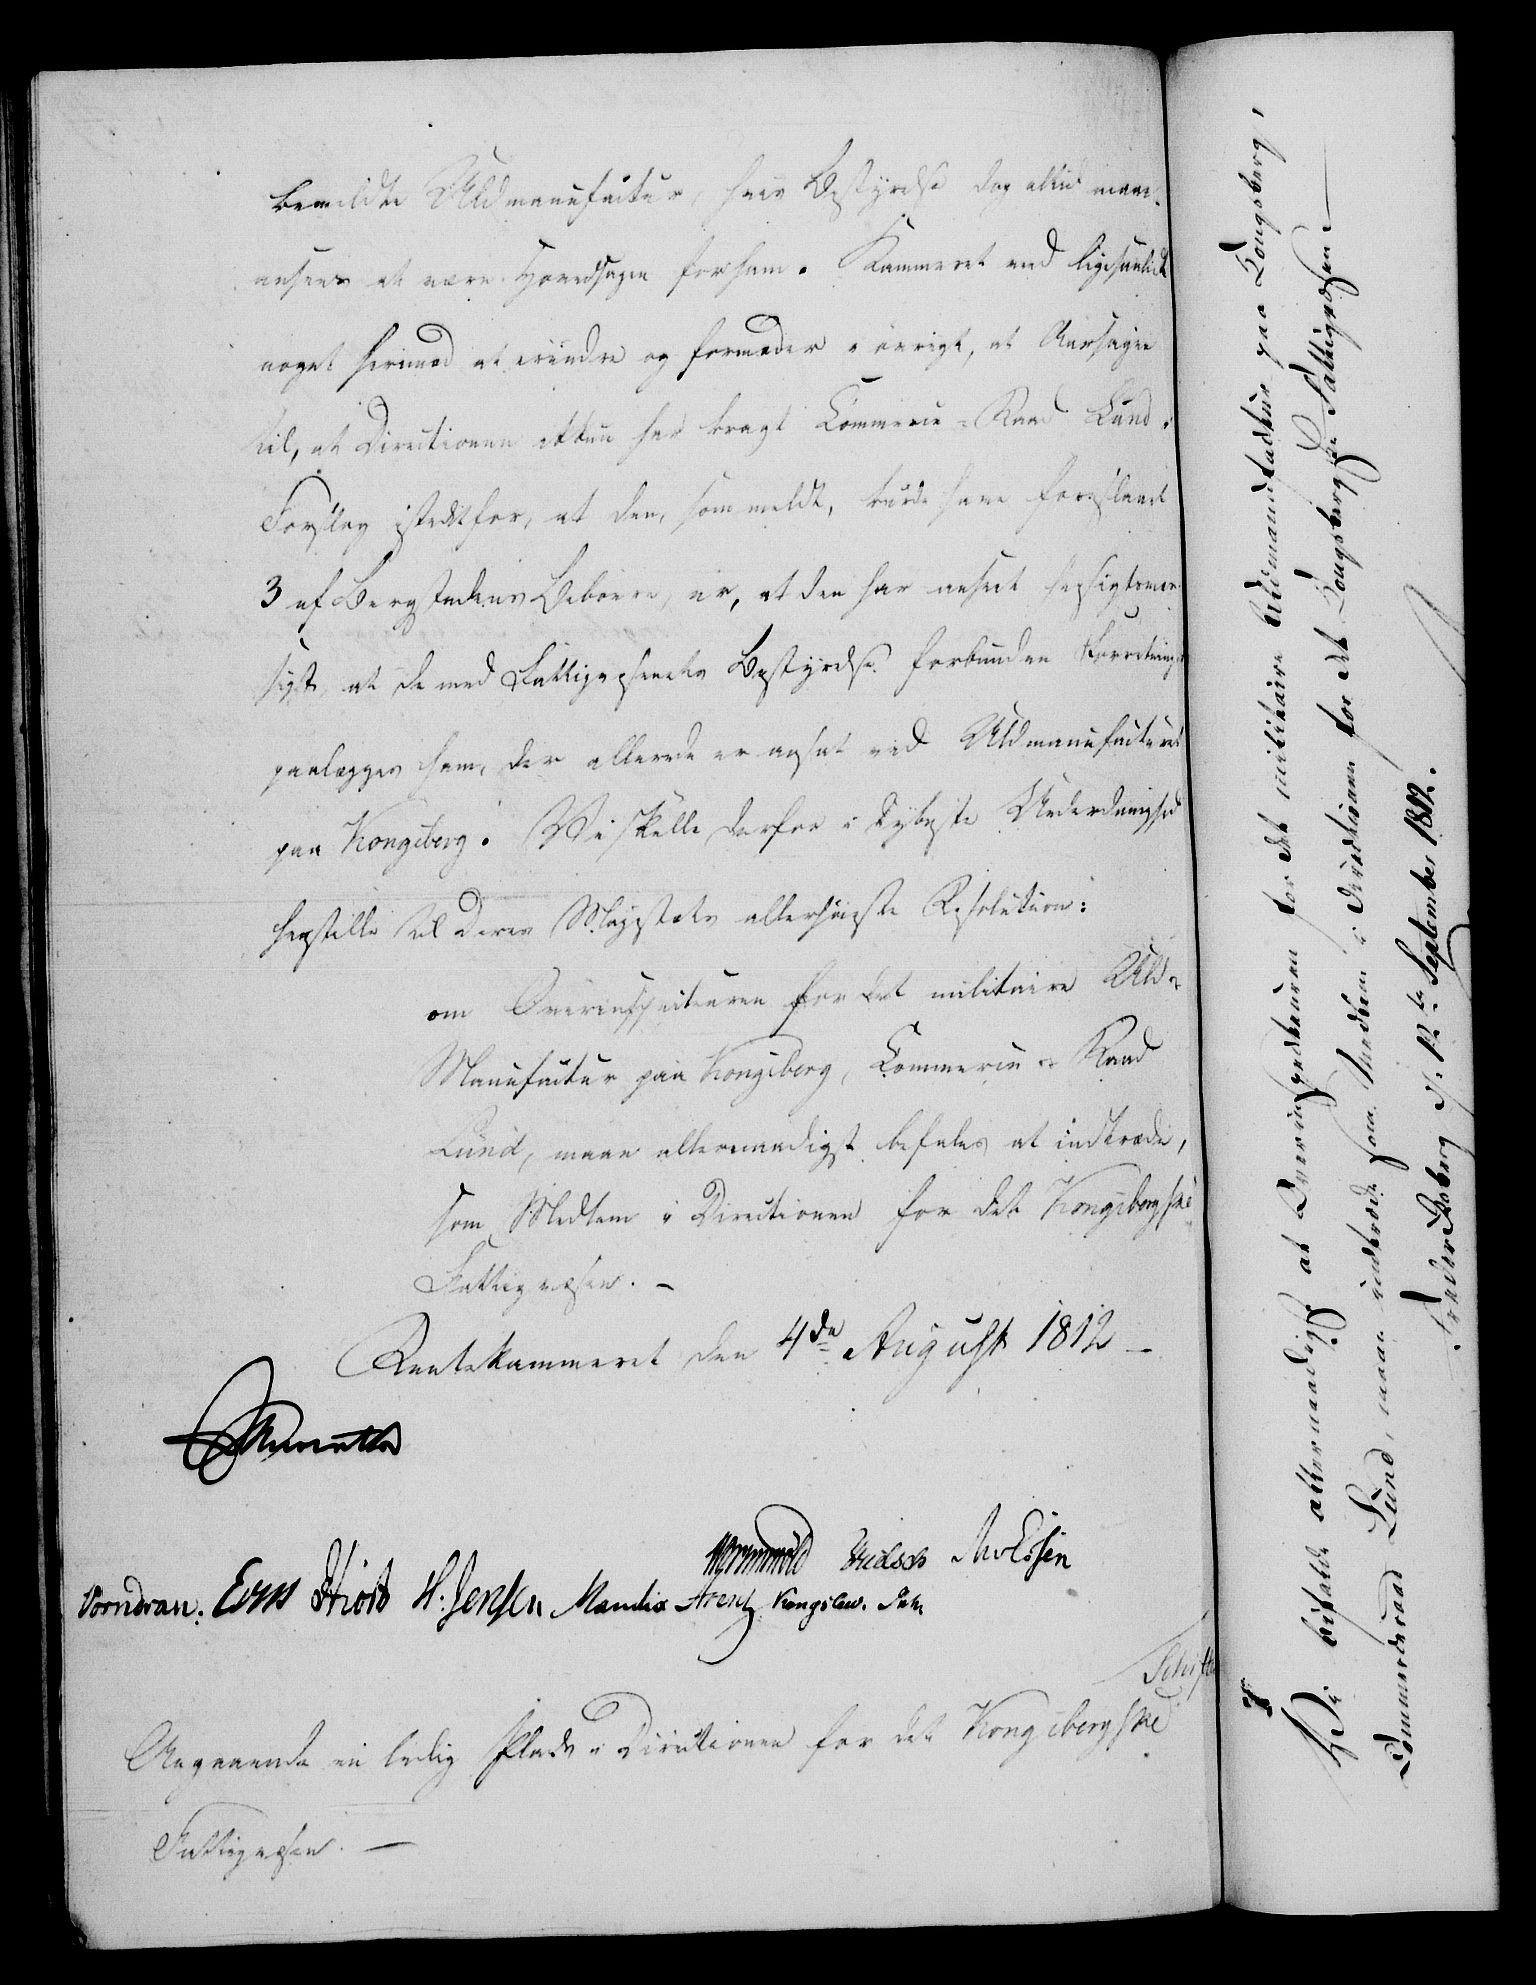 bemeldte Uldmanufactur, hvis Bestyrelse dog altid maae
ansees at være Hovedsagen for ham. Kammeret veed ligesaalidt
noget herimod at erindre og formoder i øvrigt, at Aarsagen
til, at Directionen ikkun har bragt Commerce-Raad Lund i
Forslag istedetfor, at den, som meldt, burde have foreslaaet
3 af Bergstadens Beboere, er, at den har anseet
at de med Fattigvæsenets Bestyrelse forbunden Forretninger
paalægges ham, der allerede er ansat ved Uldmanufacturet
paa Kongsberg. Vi skulle derfor i dybeste Underdanighed
henstille til Deres Majestæts allerhøieste Resolution:
om Overinspecteuren for det militaire Uld-
Manufactur paa Kongsberg, Commerce-Raad
Lund, maae allernaadigst befales at indtræde,
som Medlem i Directionen for det Kongsbergske
Fattigvæsen. —
Rentekammeret den 4de August 1812 —
Vormdran. Hiort H. Jensen Mandix Arentz Kongslew.
Angaaende en ledig Plads i Directionen for det Kongsbergske
Fattigvæsen. —
Vi bifalde allernaadigst at Overinspecteuren for det militaire Uldmanufactur paa Kongsberg,
Commerceraad Lund, maae indtræde som Medlem i Directionen for det Kongsbergske Fattigvæsen. —
Frederiksberg d. 12te September 1812.